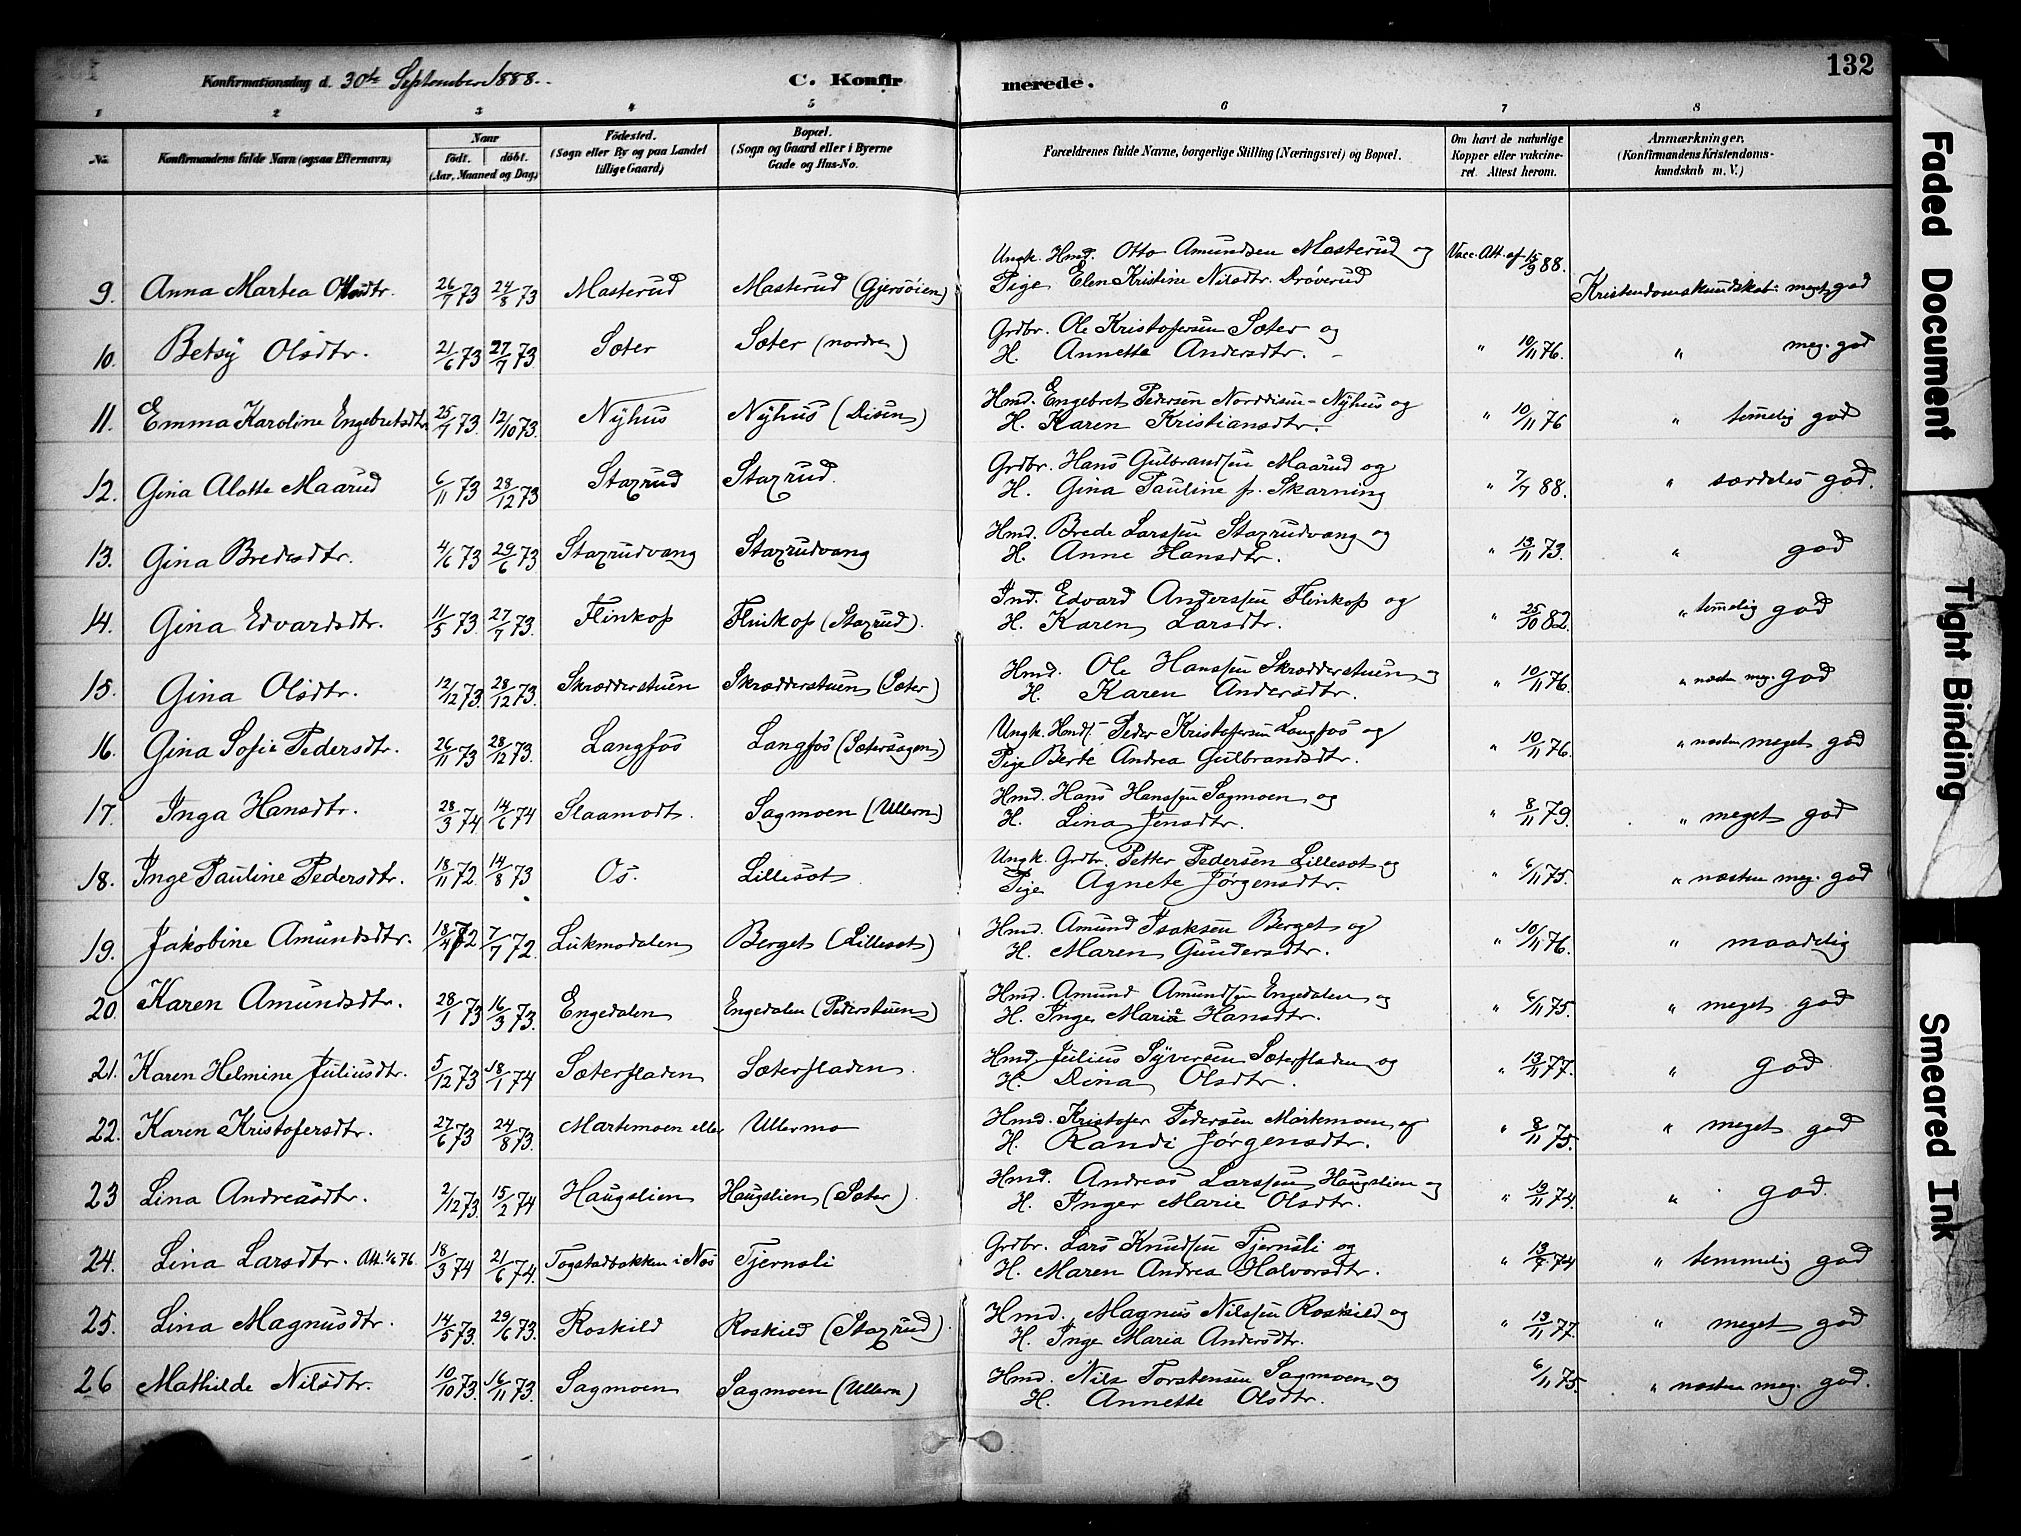 132
Konfirmationsdag d. 30te September 1888.
C. Konfirmerede.
1 2 3 4 5 6 7 8
No. Konfirmandens fulde Navn (ogsaa Efternavn) Naar født. døbt. (Aar, Maaned og Dag) Födested. (Sogn eller By og paa Landet tillige Gaard) Bopæl. (Sogn og Gaard eller i Byerne Gade og Hus-No. Forældrenes fulde Navne, borgerlige Stilling (Næringsvei) og Bopæl. Om havt de naturlige Kopper eller vakcineret. Attest herom. Anmærkninger, (Konfirmandens Kristendomskundskab m. V.)
9. Anna Martea Ottosdtr. 26/7 73 24/8 73 Masterud Masterud (Gjersøien) Ungk. Hmd. Otto Amundsen Masterud og Pige Elen Kristine Nilsdtr. Drøverud Vacc. Att. af 15/9 88. Kristendomskundskab: meget god
10. Betsy Olsdtr. 21/6 73 27/7 73 Sæter Sæter (nordre) Grdbr. Ole Kristofersen Sæter og H. Annette Andersdtr. " 10/11 76. " meg. god
11. Emma Karoline Engebretsdtr. 25/7 73. 12/10 73. Nyhus Nyhus (Disen) Hmd. Engebret Pedersen Norddisen-Nyhus og H. Karen Kristiansdtr. " 10/11 76 " temelig god
12. Gina Alotte Maarud 6/11 73 28/12 73 Staxrud Staxrud. Grdbr. Hans Gulbrandsen Maarud og H. Gina Pauline f. Skarning " 7/7 88. " særdeles god.
13. Gina Bredesdtr. 4/6 73 29/6 73 Staxrudvang Staxrudvang Hmd. Brede Larssen Staxrudvang og H. Anne Hansdtr. " 13/11 73. " god
14. Gina Edvardsdtr. 11/5 73. 27/7 73. Flinkop Flinkop (Staxrud). Ind. Edvard Anderssen Flinkop og H. Karen Larsdtr. " 25/10 82. " temelig god
15. Gina Olsdtr. 12/12 73. 28/12 73. Skrædderstuen Skrædderstuen (Sæter) Hmd. Ole Hanssen Skrædderstuen og H. Karen Andersdtr. " 10/11 76. " næsten meg. god
16. Gina Sofie Pedersdtr. 26/11 73 28/12 73. Langfos Langfos (Sætersagen) Ungk. Hmd. Peder Kristofersen Langfos og Pige Berte Andrea Gulbrandsdtr. " 10/11 76. " næsten meget god
17. Inga Hansdtr. 28/3 74 14/6 74 Slaamodt. Sagmoen (Ullern) Hmd. Hans Hanssen Sagmoen og H. Lina Jensdtr. " 8/11 79. " meget god
18. Inge Pauline Pedersdtr. 18/11 72. 14/8 73 Os. Lillesæt Ungk. Grdbr. Petter Pedersen Lillesæt og Pige Agnete Jørgensdtr. " 6/11 75. " næsten meg. god
19. Jakobine Amundsdtr. 18/4 72 7/7 72. Lukmodalen Berget (Lillesæt) Hmd. Amund Isaksen Berget og H. Maren Gundersdtr. " 10/11 76. " maadelig
20. Karen Amundsdtr. 28/1 73 16/3 73. Engedalen Engedalen (Pederstuen) Hmd. Amund Amundsen Engedalen og H. Inger Marie Hansdtr. " 6/11 75. " meget god
21. Karen Helmine Juliusdtr. 5/12 73 18/1 74 Sæterfladen Sæterfladen. Hmd. Julius Syversen Sæterfladen og H. Dina Olsdtr. " 13/11 77. " god
22. Karen Kristofersdtr. 27/6 73 24/8 73. Martemoen eller Ullermo Hmd. Kristofer Pedersen Martemoen og H. Randi Jørgensdtr. " 8/11 75. " meget god
23 Lina Andreasdtr. 2/12 73. 15/2 74 Haugslien Haugslien (Sæter). Hmd. Andreas Larssen Haugslien og H. Inger Marie Olsdtr. " 13/11 74. " god.
24. Lina Larsdtr. Att. 1/6 76. 18/3 74 21/6 74. Togstadbakken i Næs Tjernsli Grdbr. Lars Knudsen Tjernsli og H. Maren Andrea Halvorsdtr. " 13/7 74 " temmelig god
25. Lina Magnusdtr. 14/5 73. 29/6 73. Roskild Roskild (Staxrud). Hmd. Magnus Nilssen Roskild og H. Inge Maria Andersdtr. " 13/11 77. " meget god
26 Mathilde Nilsdtr. 10/10 73. 16/11 73. Sagmoen Sagmoen (Ullern) Hmd. Nils Torstensen Sagmoen og H. Annette Olsdtr. 6/11 75. " næsten meg. god.
Faded Document
Tight Binding
Smeared Ink